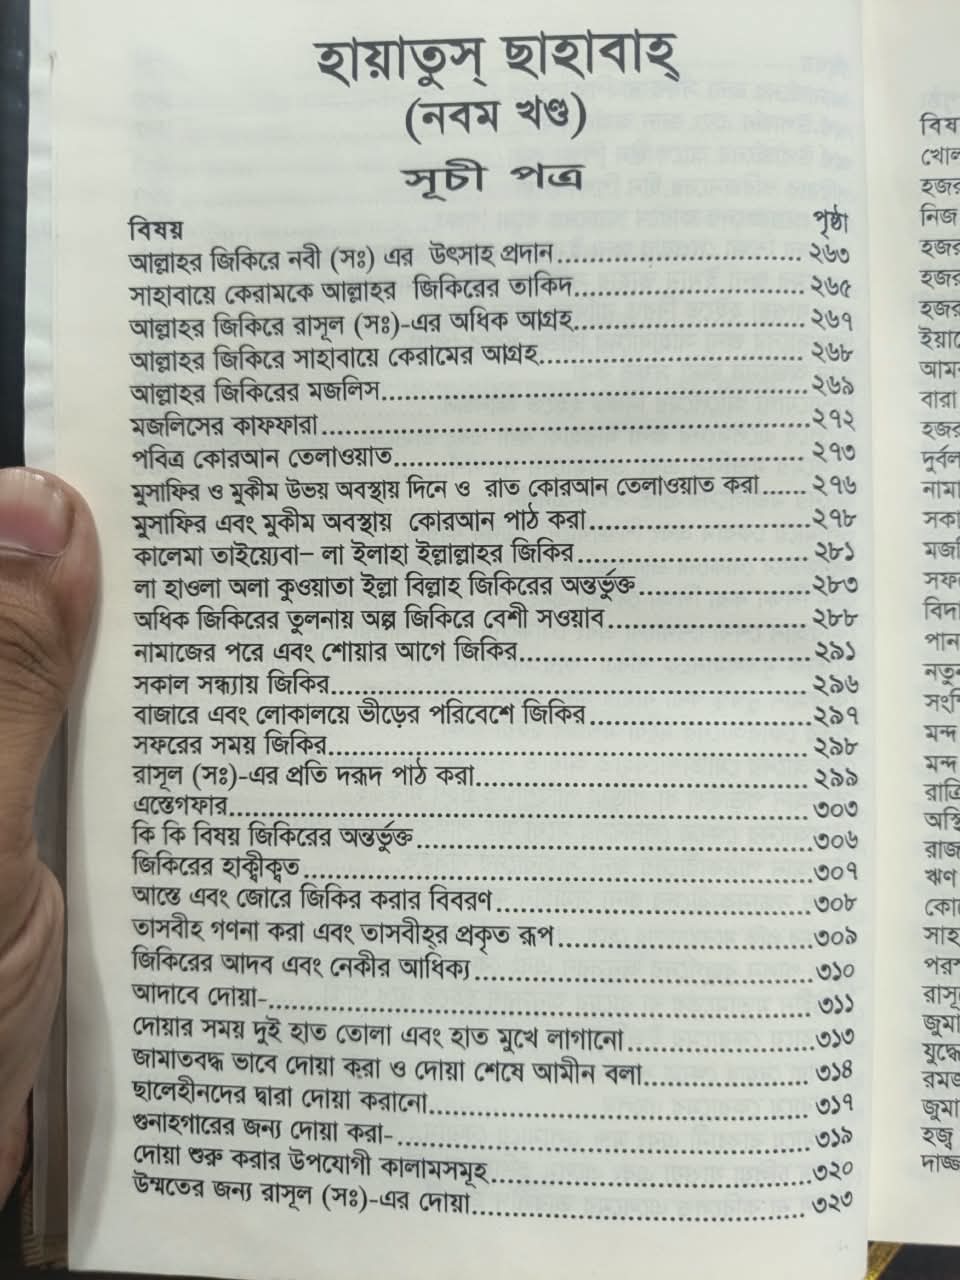 হায়াতুস্ ছাহাবাহ্
(নবম খণ্ড)
সূচী পত্র
বিষয় পৃষ্ঠা
আল্লাহর জিকিরে নবী (সঃ) এর উৎসাহ প্রদান.............................. ২৬৩
সাহাবায়ে কেরামকে আল্লাহর জিকিরের তাকিদ............................ ২৬৫
আল্লাহর জিকিরে রাসূল (সঃ)-এর অধিক আগ্রহ........................... ২৬৭
আল্লাহর জিকিরে সাহাবায়ে কেরামের আগ্রহ............................... ২৬৮
আল্লাহর জিকিরের মজলিস.................................................. ২৬৯
মজলিসের কাফফারা......................................................... ২৭২
পবিত্র কোরআন তেলাওয়াত................................................ ২৭৩
মুসাফির ও মুকীম উভয় অবস্থায় দিনে ও রাত কোরআন তেলাওয়াত করা...... ২৭৬
মুসাফির এবং মুকীম অবস্থায় কোরআন পাঠ করা...........................২৭৮
কালেমা তাইয়্যেবা– লা ইলাহা ইল্লাল্লাহর জিকির............................২৮১
লা হাওলা অলা কুওয়াতা ইল্লা বিল্লাহ জিকিরের অন্তর্ভুক্ত.....................২৮৩
অধিক জিকিরের তুলনায় অল্প জিকিরে বেশী সওয়াব........................২৮৮
নামাজের পরে এবং শোয়ার আগে জিকির...................................২৯১
সকাল সন্ধ্যায় জিকির........................................................ ২৯৬
বাজারে এবং লোকালয়ে ভীড়ের পরিবেশে জিকির..........................২৯৭
সফরের সময় জিকির.........................................................২৯৮
রাসূল (সঃ)-এর প্রতি দরূদ পাঠ করা........................................ ২৯৯
এস্তেগফার...................................................................... ৩০৩
কি কি বিষয় জিকিরের অন্তর্ভুক্ত..............................................৩০৬
জিকিরের হাক্বীক্বত............................................................৩০৭
আস্তে এবং জোরে জিকির করার বিবরণ.....................................৩০৮
তাসবীহ গণনা করা এবং তাসবীহ্‌র প্রকৃত রূপ..............................৩০৯
জিকিরের আদব এবং নেকীর আধিক্য........................................৩১০
আদাবে দোয়া-................................................................. ৩১১
দোয়ার সময় দুই হাত তোলা এবং হাত মুখে লাগানো......................৩১৩
জামাতবদ্ধ ভাবে দোয়া করা ও দোয়া শেষে আমীন বলা................... ৩১৪
ছালেহীনদের দ্বারা দোয়া করানো............................................ ৩১৭
গুনাহগারের জন্য দোয়া করা-................................................ ৩১৯
দোয়া শুরু করার উপযোগী কালামসমূহ..................................... ৩২০
উম্মতের জন্য রাসূল (সঃ)-এর দোয়া........................................ ৩২৩
বিষ
খোল
হজর
নিজ
হজর
হজর
হজর
ইয়া
আম
বারা
হজর
দুর্বল
নামা
সকা
মজ
সফ
বিদ
পান
নতু
সং
মন্দ
মন্দ
রাত্রি
অস্থি
রাজ
ঋণ
কো
সাহ
পর
রাসূ
জুমা
যুদ্ধে
রমজ
জুমা
হজ্ব
দাজ্জ